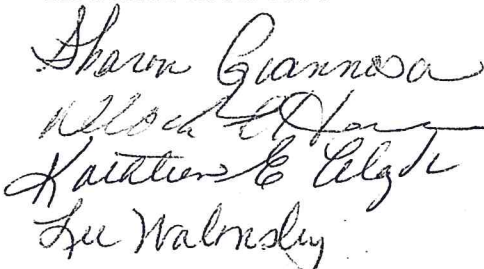 Sharon Giannosa
E
Kathleen E Clyde
Lee Walmsley